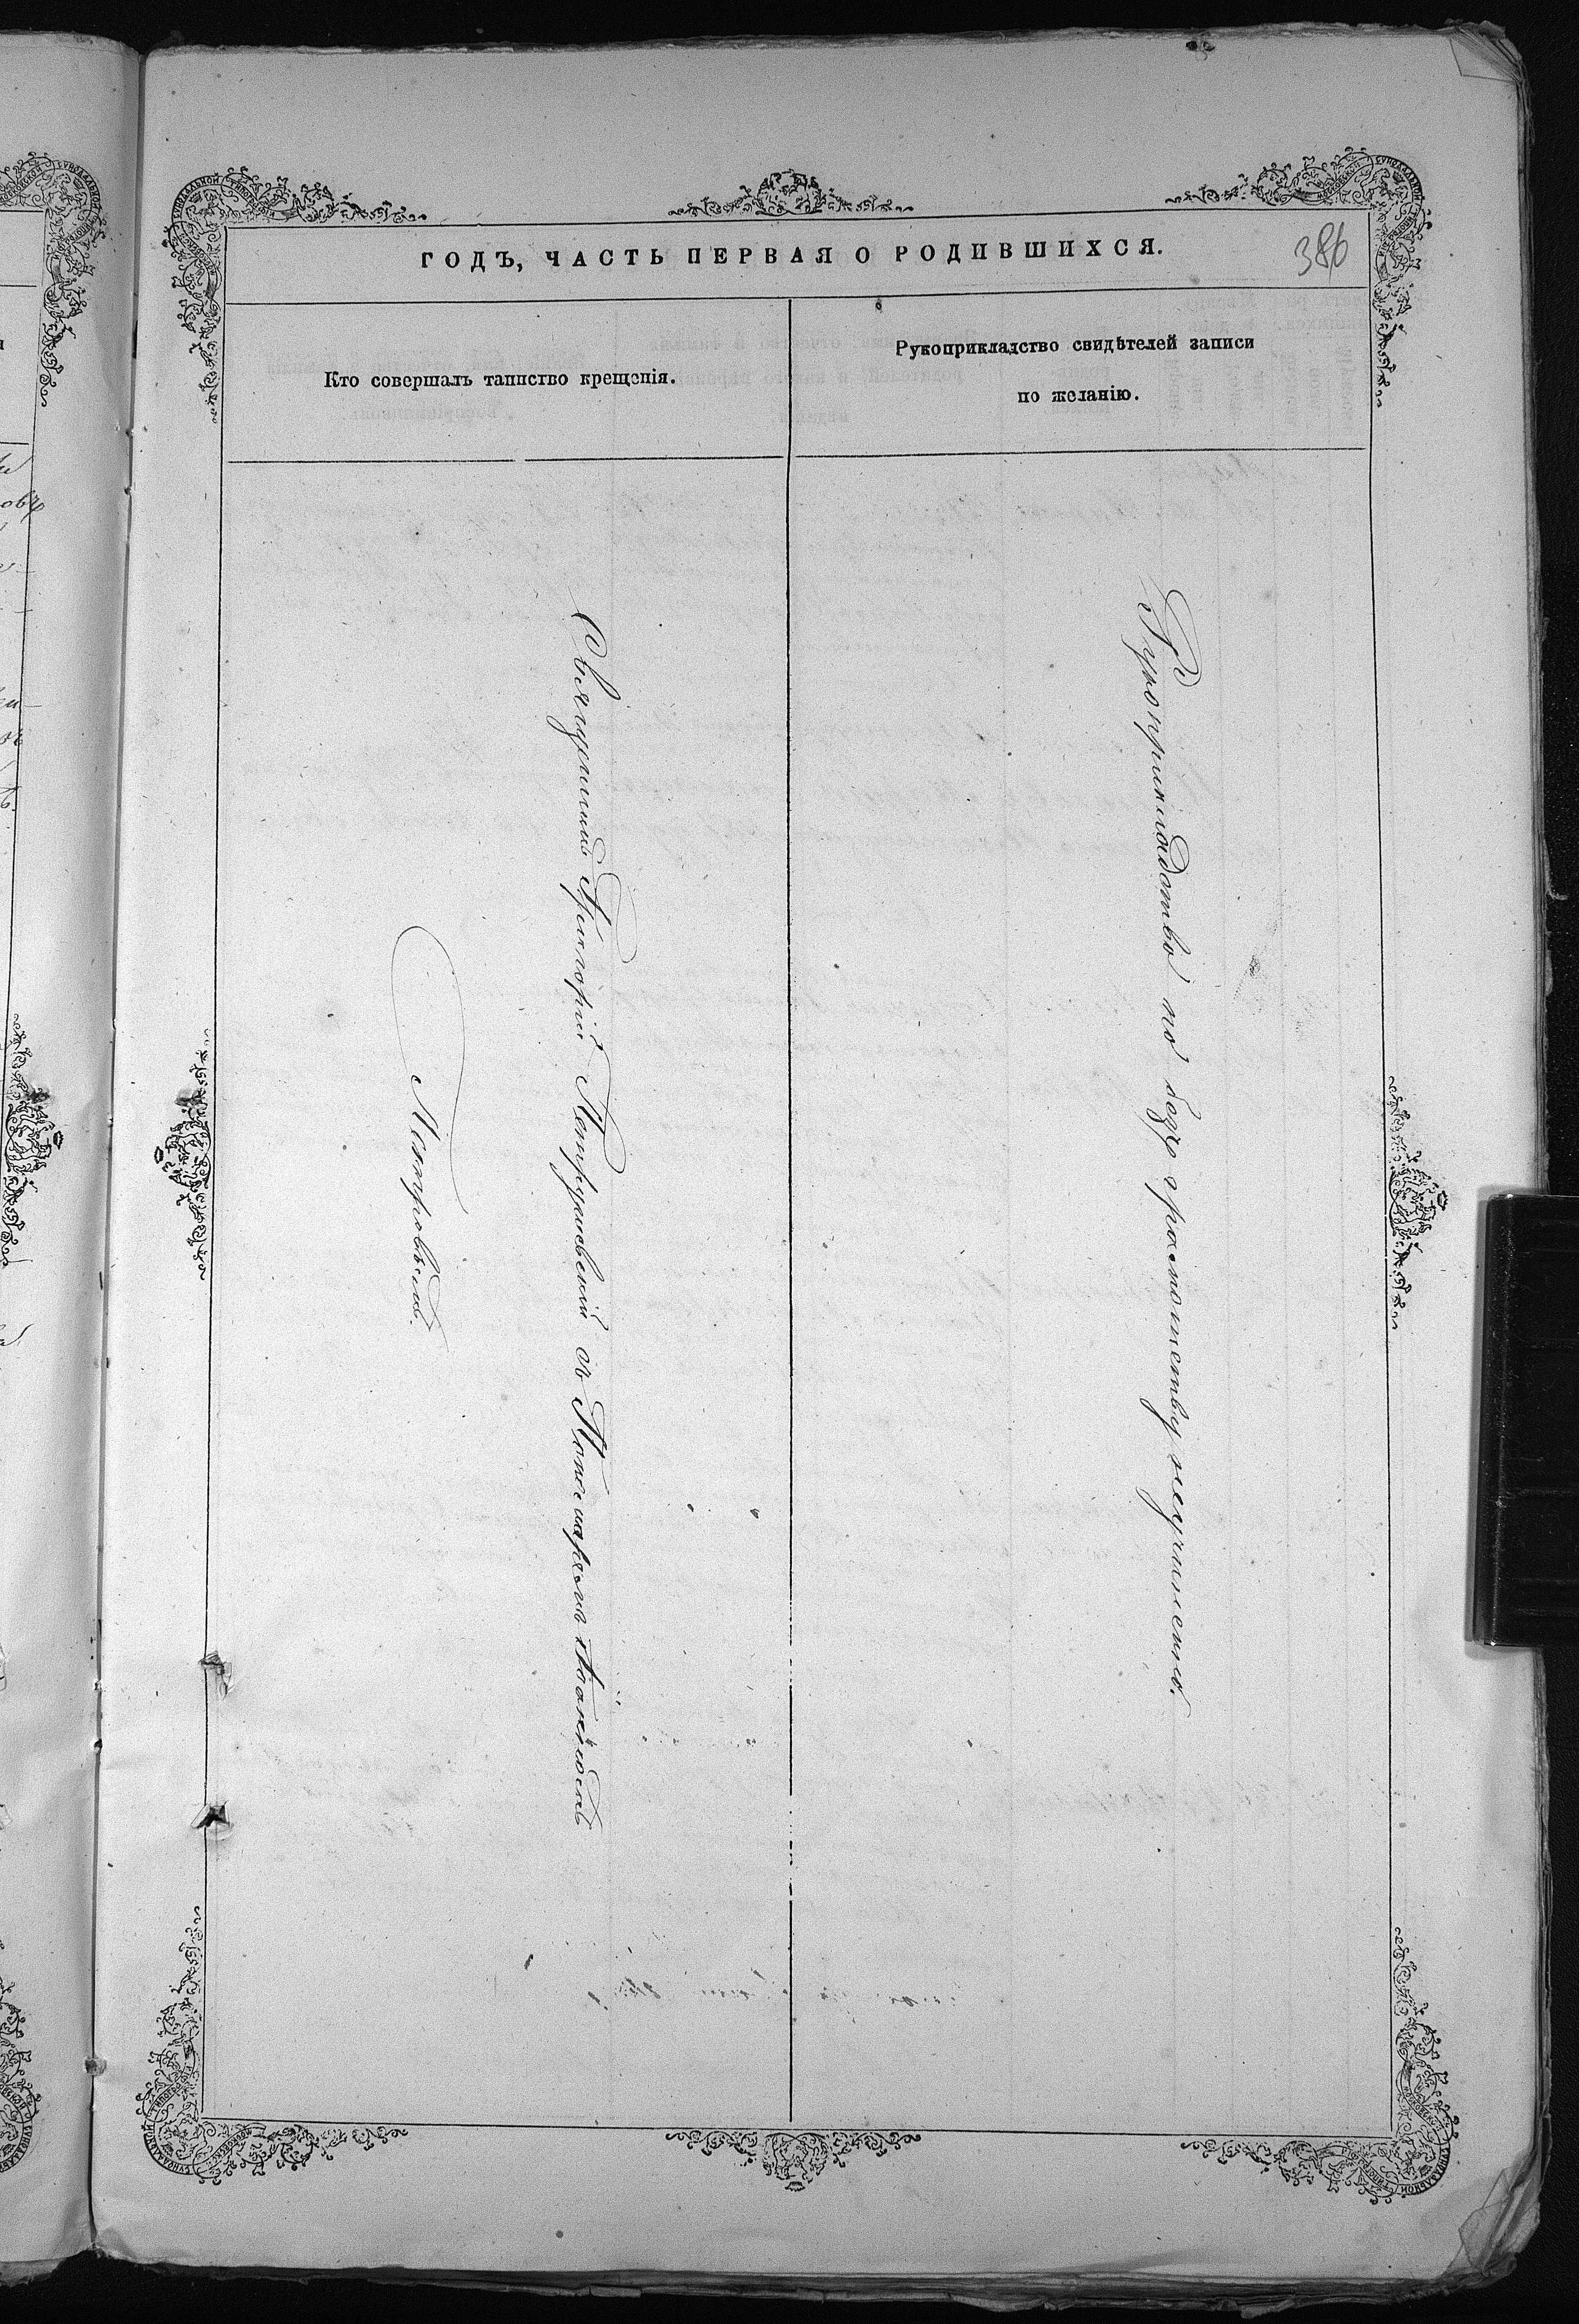 ГОДЪ, ЧАСТЬ ПЕРВАЯ О РОДИВШИХСЯ.
386
Кто совершалъ таинство крещенія.
Рукоприкладство свидѣтелей записи
по желанію.
Священникъ Григорій Петрушевскій съ Пономаремъ
Петровымъ.
Рукоприкладство по безъ грамотству неучинено.